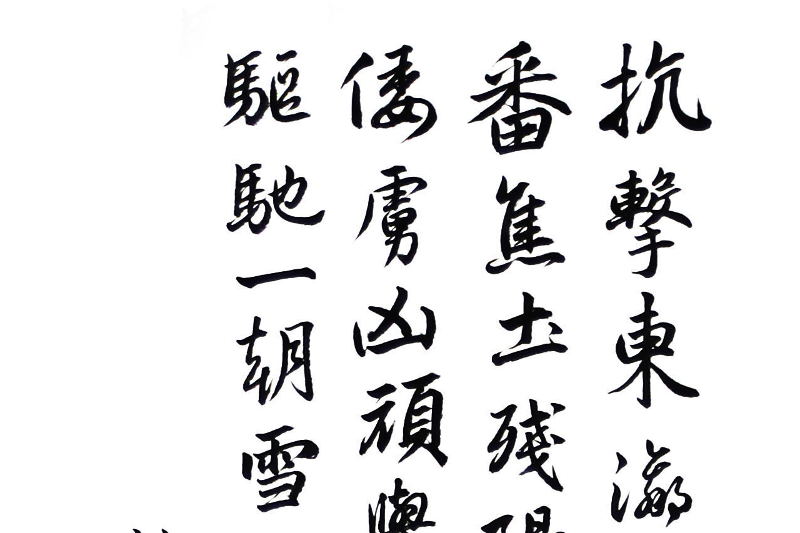 抗擊東瀛
番焦土殘陽
倭虜凶頑與
驅馳一朝雪